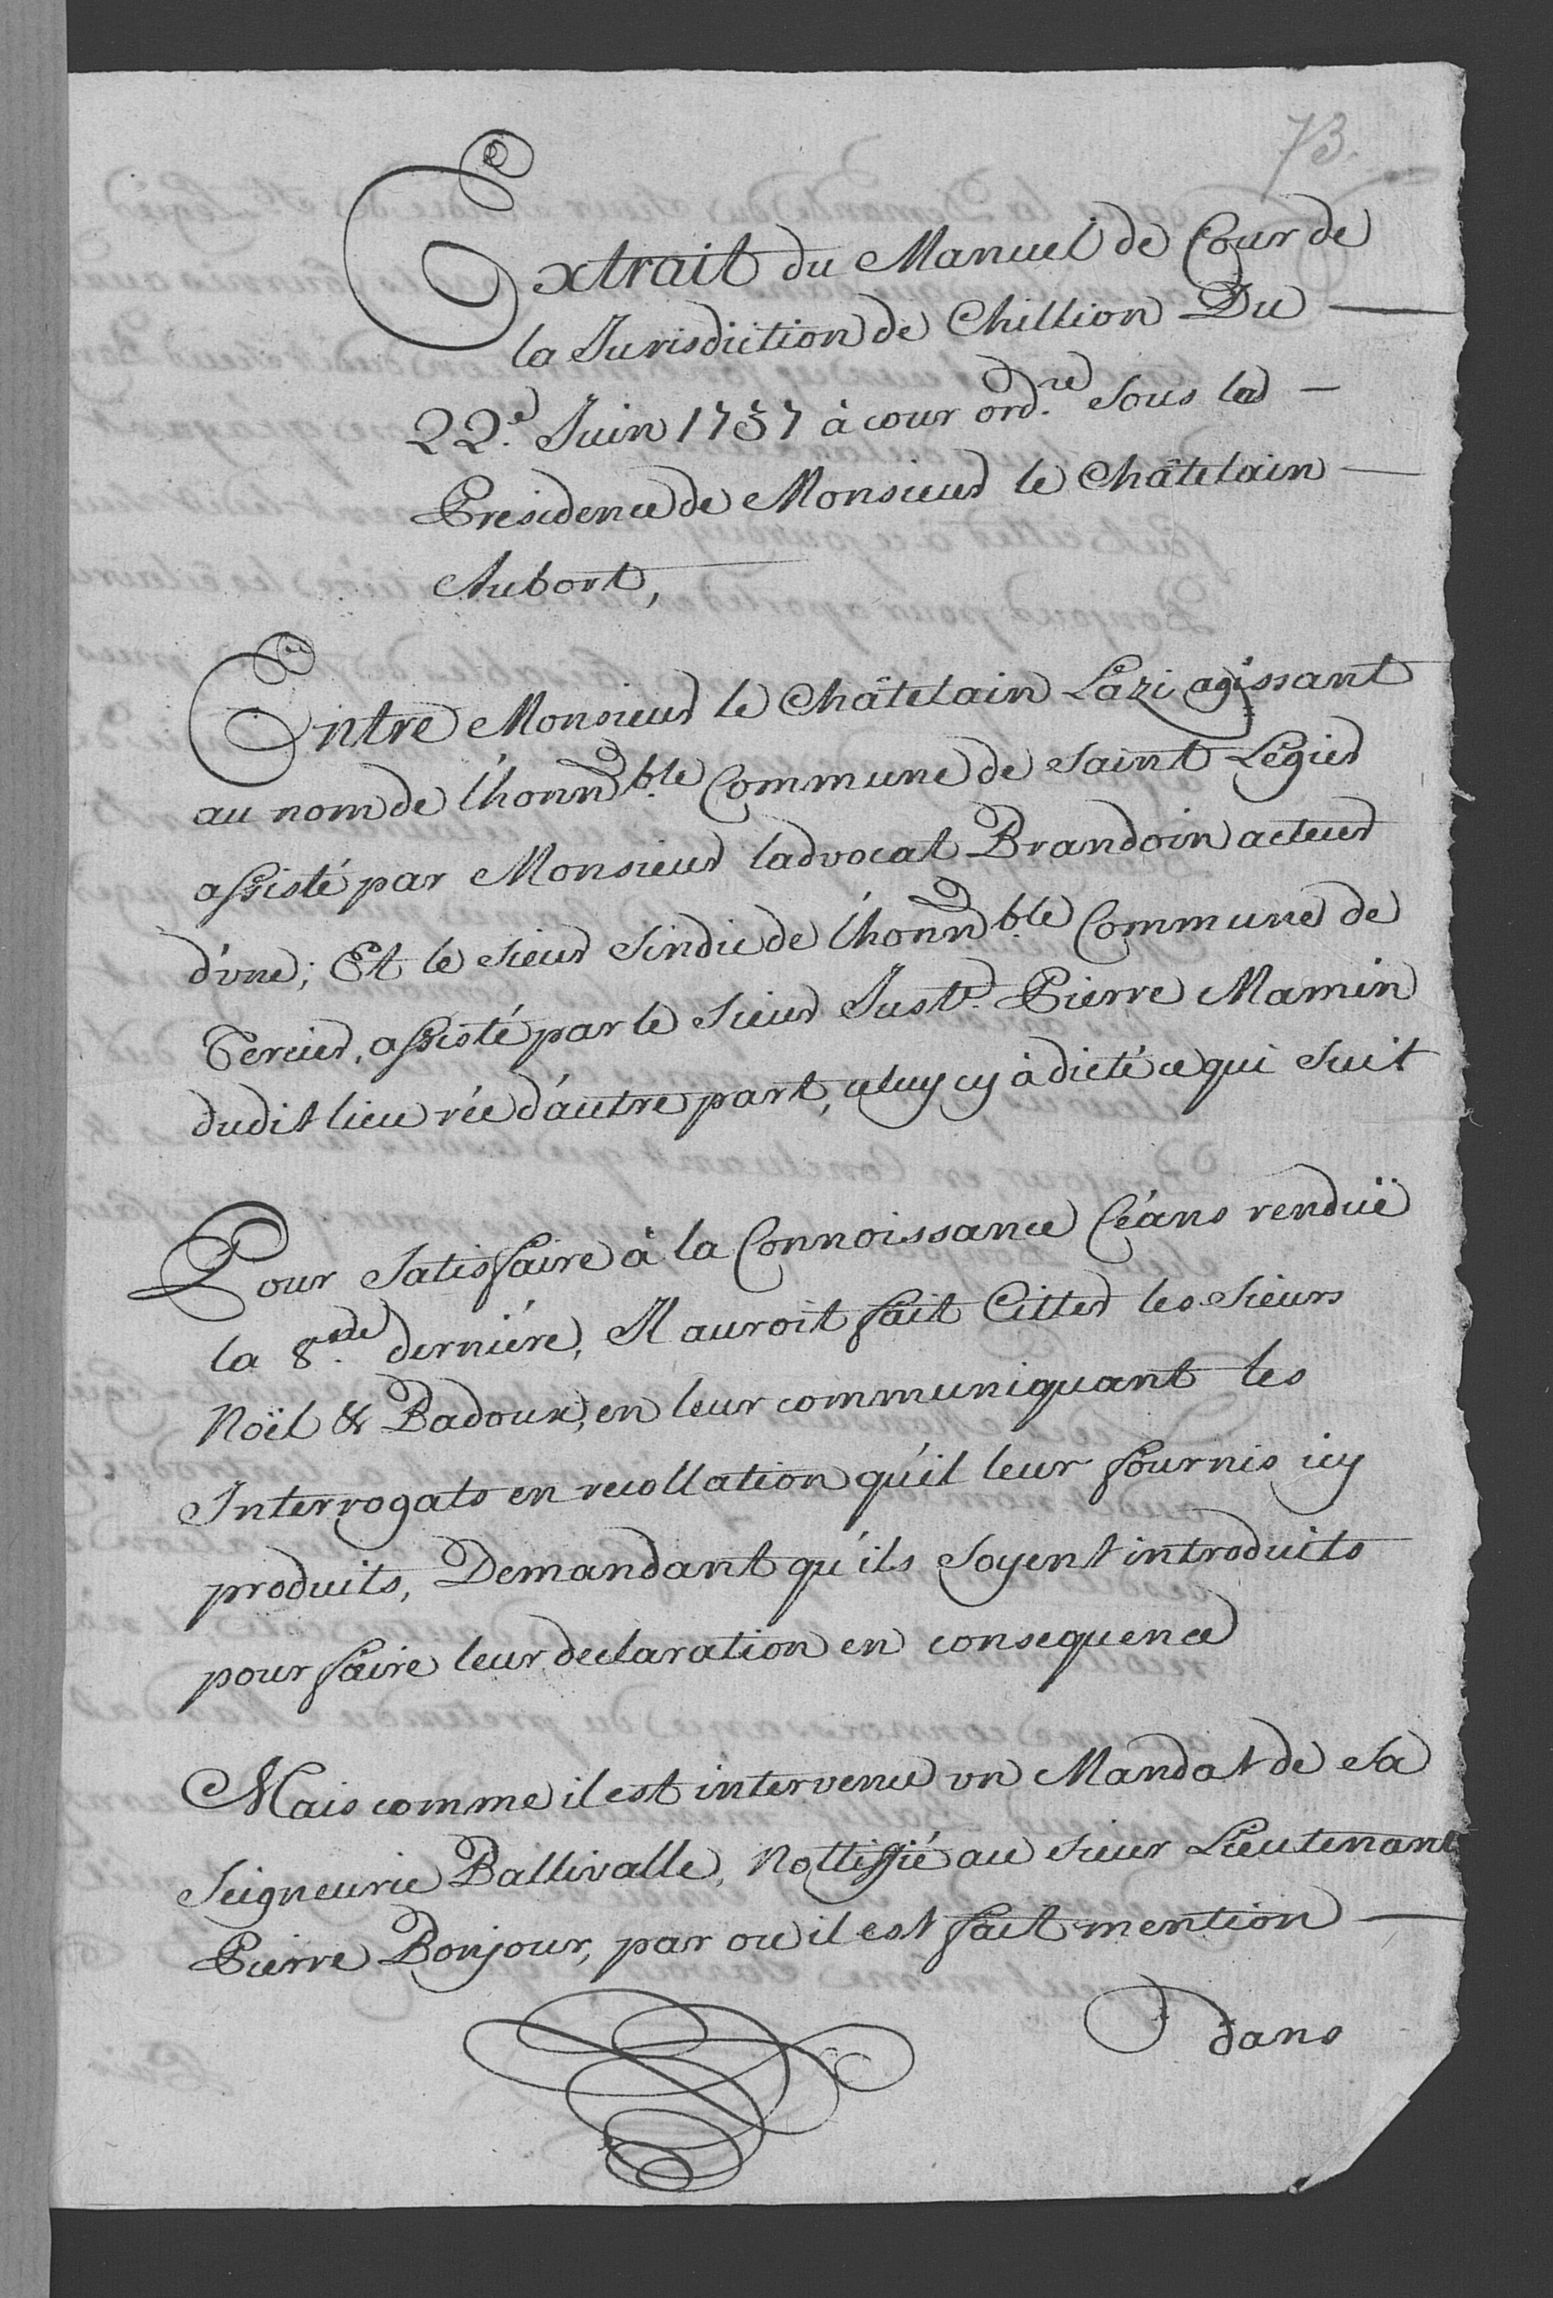 73.
Extrait du Manuel de Cour de
la Jurisdiction de Chillion Du
22.e Juin 1757 à cour ord.re sous la
Presidence de Monsieur le Châtelain
Aubort,
Entre Monsieur le Châtelain Lazi agissant
au nom de l'honn.ble Commune de Saint Légier
assisté par Monsieur ladvocat Brandoin acteur
d'une; Et le sieur sindic de l'honn.ble Commune de
Tercier, assisté par le sieur Just.r Pierre Mamin
dudit lieu rée d'autre part, celuy cy à dicté ce qui suit
Pour satisfaire à la Connoissance Céans renduë
la 8.ne derniére, Il auroit fait Citter les sieurs
Noël & Badoux, en leur communiquant les
Interrogats en recollation qu'il leur fournis icy
produits, Demandant qu'ils soyent introduits
pour faire leur declaration en consequence
Mais comme il est intervenu un Mandat de sa
Seigneurie Ballivalle, Nottiffié au sieur Lieutenant
Pierre Bonjour, par ou il est fait mention
dans